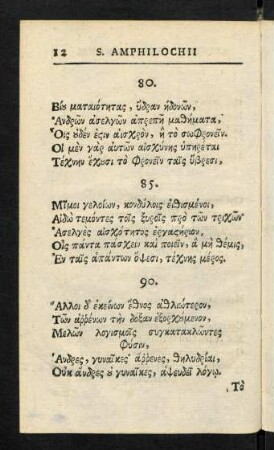 12 S. AMPHILOCHII
80.
Βίȣ ματαιότητας, ὕδραν ἡδονῶν,
Ἀνδρῶν ἀσελγῶν ἀπρεπῆ μαθήματα,
Οἷς ȣ̓δέν ἐςιν αἰσχρὸν, ἢ τὸ σωφρονεῖν.
Οἱ μὲν γὰρ αὐτῶν αἰσχύνης ὑπηρέται
Τέχνην ἔχȣσι τὸ φρονεῖν ταῖς ὕβρεσι,
85.
Μῖμοι γελοίων, κονδύλοις εἰθισμένοι,
Αἰδῶ τεμόντες τοῖς ξυροῖς πρὸ τῶν τριχῶν
Ἀσελγὲς αἰσχότητος ἐργαςήριον,
Οἷς πάντα πάσχειν καὶ ποιεῖν, ἃ μὴ θέμις,
Ἐν ταῖς ἁπάντων ὄψεσι, τέχνης μέρος.
90.
Ἄλλοι δ' ἐκείνων ἔθνος ἀθλιώτερον,
Τῶν ἀῤῥένων τὴν δόξαν ἐξορχȣ́μενον,
Μελῶν λογισμοῖς συγκατακλῶντες
φύσιν,
Ἄνδρες, γυναῖκες· ἄῤῥενες, θηλυδρίαι,
Οὐκ ἄνδρες ȣ̓ γυναῖκες, ἀψευδεῖ λόγῳ.
Τὸ